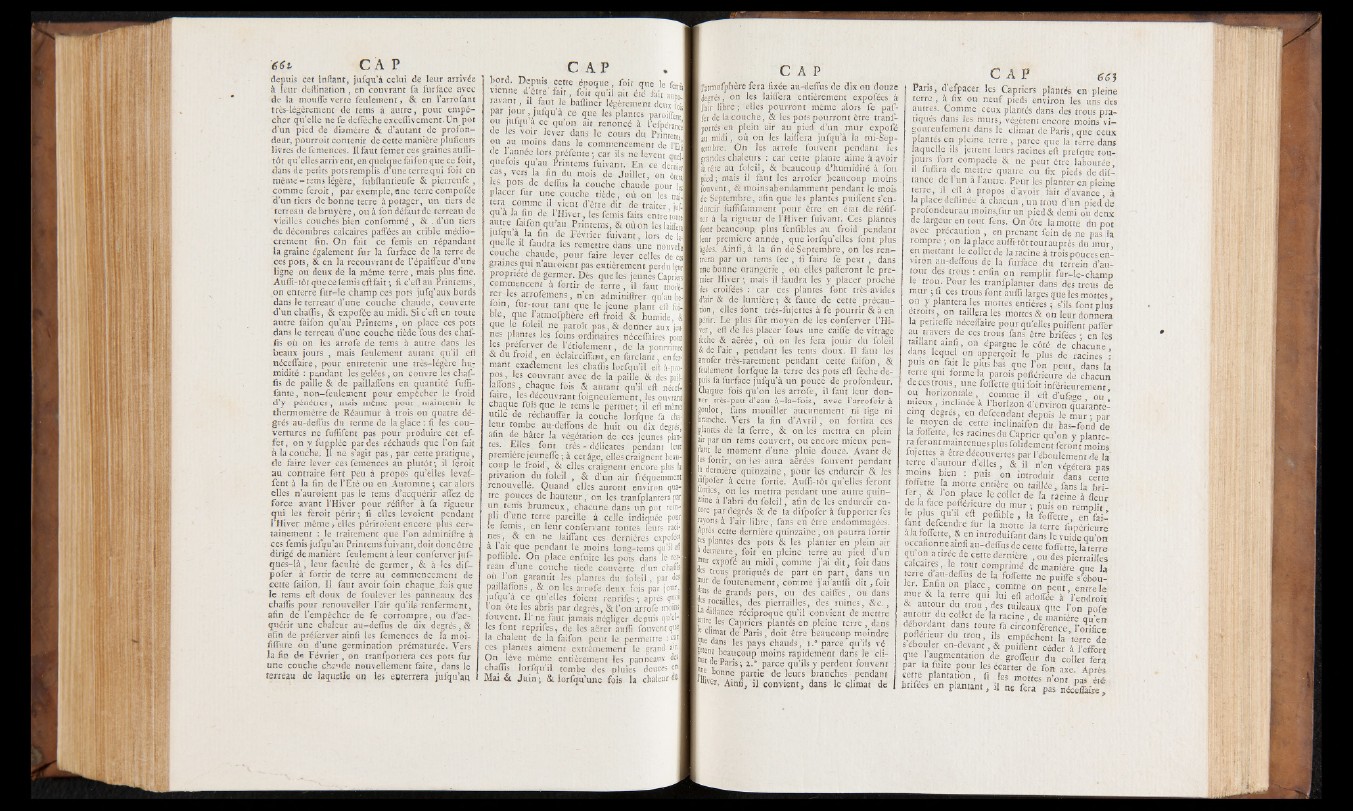 662 CAP
depuis cet inſtant, juſqu'à celui de leur arrivée
à leur deſtination, en couvrant ſa ſurface avec
de la mouſſe verte ſeulement, & en l'arroſant
très-légèrement de tems à autre, pour empê-
cher qu'elle ne ſe deſſèche exceſſivement. Un pot
d'un pied de diamètre & d'autant de profon-
deur, pourroit contenir de cette manière pluſieurs
livres de ſemences. Il faut ſemer ces graines auſſi-
tôt qu'elles arrivent, en quelque ſaiſon que ce ſoit,
dans de petits pots remplis d'une terre qui ſoit en
même-tems légère, ſubſtantieuſe & pierreuſe,
comme ſeroit, par exemple, une terre compoſée
d'un tiers de bonne terre à potager, un tiers de
terreau de bruyère, ou à ſon défaut de terreau de
vieilles couches bien conſommé, & d'un tiers
de décombres calcaires paſſées au crible médio-
crement fin. On fait ce ſemis en répandant
la graine également ſur la ſurface de la terre de
ces pots, & en la recouvrant de l'épaiſſeur d'une
ligne ou deux de la même terre, mais plus fine.
Auſſi-tôt que ce ſemis eſt fait, ſi c'eſt au Printems,
on enterre ſur-le champ ces pots juſqu'aux bords
dans le terreau d'une couche chaude, couverte
d'un chaſſis, & expoſée au midi. Si c'eſt en toute
autre ſaiſon qu'au Printems, on place ces pots
dans le terreau d'une couche tiède ſous des chaſ-
ſis où on les arroſe de tems à autre dans les
beaux jours, mais ſeulement autant qu'il eſt
néceſſaire, pour entretenir une très-légère hu-
midité : pendant les gelées, on couvre les chaſ-
ſis de paille & de paillaſſons en quantité ſuffi-
ſante, non-ſeulement pour empêcher le froid
d'y pénétrer, mais même pour maintenir le
thermomètre de Réaumur à trois ou quatre dé-
grés au-deſſus du terme de la glace : ſi les cou-
vertures ne ſuffiſent pas pour produire cet ef-
fet, on y ſupplée par des réchauds que l'on fait
à la couche. Il ne s'agit pas, par cette pratique,
de faire lever ces ſemences au plutôt; il ſeroit
au contraire fort peu à propos qu'elles levaſ-
ſent à la fin de l'Eté ou en Automne; car alors
elles n'auroient pas le tems d'acquérir aſſez de
force avant l'Hiver pour réſiſter à ſa rigueur
qui les feroit périr; ſi elles levoient pendant
l'Hiver même, elles périroient encore plus cer-
tainement : le traitement que l'on adminiſtre à
ces ſemis juſqu'au Printems ſuivant, doit donc être
dirigé de manière ſeulement à leur conſerver juſ-
ques-là, leur faculté de germer, & à les diſ-
poſer à ſortir de terre au commencement de
cette ſaiſon. Il faut avoir ſoin chaque fois que
le tems eſt doux de ſoulever les panneaux des
chaſſis pour renouveller l'air qu'ils renferment,
afin de l'empêcher de ſe corrompre, ou d'ac-
quérir une chaleur au-deſſus de dix degrés, &
afin de préſerver ainſi les ſemences de la moi-
ſiſſure ou d'une germination prématurée. Vers
la fin de Février, on tranſportera ces pots ſur
une couche chaude nouvellement faite, dans le
terreau de laquelle on les enterrera juſqu'au
CAP
bord. Depuis cette époque, ſoit que le ſemis
vienne d'être fait, ſoit qu'il ait été fait aupa-
ravant, il faut le baſſiner légèrement deux fois
par jour, juſqu'à ce que les plantes paroiſſent,
ou juſqu'à ce qu'on ait renoncé à l'eſpérance
de les voir lever dans le cours du Printems,
ou au moins dans le commencement de l'Eté
de l'année lors préſente; car ils ne lèvent quel-
quefois qu'au Printems ſuivant. En ce dernier
cas, vers la fin du mois de Juillet, on ôtera
les pots de deſſus la couche chaude pour les
placer ſur une couche tiède, où on les trai-
tera comme il vient d'être dit de traiter, juſ-
qu'à la fin de l'Hiver, les ſemis faits entre toute
autre ſaiſon qu'au Printems, & où on les laiſſera
juſqu'à la fin de Février ſuivant, lors de la-
quelle il faudra les remettre dans une nouvelle
couche chaude, pour faire lever celles de ces
graines qui n'auroient pas entièrement perdu leur
propriété de germer. Dès que les jeunes Capriers
commencent à ſortir de terre, il faut modé-
rer les arroſemens, n'en adminiſtrer qu'au be-
ſoin, ſur-tout tant que le jeune plant eſt foi-
ble, que l'atmoſphère eſt froid & humide, &
que le ſoleil ne paroît pas, & donner aux jeu-
nes plantes les ſoins ordinaires néceſſaires pour
les préſerver de l'étiolement, de la pourriture
& du froid, en éclairciſſant, en ſarclant, en fer-
mant exactement les chaſſis lorſqu'il eſt à-pro-
pos, les couvrant avec de la paille & des pail-
laſſons, chaque fois & autant qu'il eſt néceſ-
ſaire, les découvrant ſoigneuſement, les ouvrant
chaque fois que le tems le permet; il eſt même
utile de réchauffer la couche lorſque ſa cha-
leur tombe au-deſſous de huit ou dix degrés,
afin de hâter la végétation de ces jeunes plan-
tes. Elles ſont très-délicates pendant leur
première jeuneſſe; à cet âge, elles craignent beau-
coup le froid, & elles craignent encore plus la
privation du ſoleil, & d'un air fréquemment
renouvellé. Quand elles auront environ qua-
tre pouces de hauteur, on les tranſplantera par
un tems brumeux, chacune dans un pot rem-
pli d'une terre pareille à celle indiquée pour
le ſemis, en leur conſervant toutes leurs raci-
nes, & en ne laiſſant ces dernières expoſées
à l'air que pendant le moins long-tems qu'il eſt
poſſible. On place enſuite les pots dans le ter-
reau d'une couche tiède couverte d'un chaſſis
où l'on garantit les plantes du ſoleil, par des
paillaſſons, & on les arroſe deux fois par jour,
juſqu'à ce qu'elles ſoient repriſes; après quoi
l'on ôte les abris par degrés, & l'on arroſe moins
ſouvent. Il ne faut jamais négliger depuis qu'el-
les ſont repriſes, de les aërer auſſi ſouvent que
la chaleur de la ſaiſon peut le permettre : car
ces plantes aiment extrêmement le grand air.
On lève même entièrement les panneaux des
chaſſis lorſqu'il tombe des pluies douces en
Mai & Juin; & lorſqu'une fois la chaleur de
CAP
l'atmoſphère ſera fixée au-deſſus de dix ou douze
degrés, on les laiſſera entièrement expoſées à
l'air libre; elles pourront même alors ſe paſ-
ſer de la couche, & les pots pourront être tranſ-
portés en plein air au pied d'un mur expoſé
au midi, où on les laiſſera juſqu'à la mi-Sep-
tembre. On les arroſe ſouvent pendant les
grandes chaleurs : car cette plante aime à avoir
la tête au ſoleil, & beaucoup d'humidité à ſon
pied; mais il faut les arroſer beaucoup moins
ſouvent, & moins abondamment pendant le mois
de Septembre, afin que les plantes puiſſent s'en-
durcir ſuffiſamment pour être en état de réſiſ-
ter à la rigueur de l'Hiver ſuivant. Ces plantes
ſont beaucoup plus ſenſibles au froid pendant
leur première année, que lorſqu'elles ſont plus
âgées. Ainſi, à la fin de Septembre, on les ren-
trera par un tems ſec, ſi faire ſe peut, dans
une bonne orangerie, où elles paſſeront le pre-
mier Hiver; mais il faudra les y placer proche
les croiſées : car ces plantes ſont très-avides
d'air & de lumière; & faute de cette précau-
tion, elles ſont très-ſujettes à ſe pourrir & à en
périr. Le plus ſûr moyen de les conſerver l'Hi-
ver, eſt de les placer ſous une caiſſe de vitrage
sèche & aërée, où on les fera jouir du ſoleil
& de l'air, pendant les tems doux. Il faut les
arroſer très-rarement pendant cette ſaiſon, &
ſeulement lorſque la terre des pots eſt sèche de-
puis ſa ſurface juſqu'à un pouce de profondeur.
Chaque fois qu'on les arroſe, il faut leur don-
ner très-peu d'eau à-la-fois, avec l'arroſoir à
goulot, ſans mouiller aucunement ni tige ni
branche. Vers la fin d'Avril, on ſortira ces
plantes de la ſerre, & on les mettra en plein
air par un tems couvert, ou encore mieux pen-
dant le moment d'une pluie douce. Avant de
les ſortir, on les aura aërées ſouvent pendant
la dernière quinzaine, pour les endurcir & les
diſpoſer à cette ſortie. Auſſi-tôt qu'elles ſeront
ſorties, on les mettra pendant une autre quin-
zaine à l'abri du ſoleil, afin de les endurcir en-
core par degrés & de la diſpoſer à ſupporter ſes
rayons à l'air libre, ſans en être endommagées.
Après cette dernière quinzaine, on pourra ſortir
ces plantes des pots & les planter en plein air
à demeure, ſoit en pleine terre au pied d'un
mur expoſé au midi, comme j'ai dit, ſoit dans
des trous pratiqués de part en part, dans un
mur de ſoutenement, comme j'ai auſſi dit, ſoit
dans de grands pots, ou des caiſſes, ou dans
des rocailles, des pierrailles, des ruines, &c.,
La diſtance réciproque qu'il convient de mettre
entre les Capriers plantés en pleine terre, dans
le climat de Paris, doit être beaucoup moindre
que dans les pays chauds, 1.° parce qu'ils vé-
gètent beaucoup moins rapidement dans le cli-
mat de Paris; 2.° parce qu'ils y perdent ſouvent
une bonne partie de leurs branches pendant
l'Hiver. Ainſi, il convient, dans le climat de
CAP 663
Paris, d'eſpacer les Capriers plantés en pleine
terre, à ſix ou neuf pieds environ les uns des
autres. Comme ceux plantés dans des trous pra-
tiqués dans les murs, végètent encore moins vi-
goureuſement dans le climat de Paris, que ceux
plantés en pleine terre, parce que la terre dans
laquelle ils jettent leurs racines eſt preſque tou-
jours fort compacte & ne peut être labourée,
il ſuffira de mettre quatre ou ſix pieds de diſ-
tance de l'un à l'autre. Pour les planter en pleine
terre, il eſt à propos d'avoir fait d'avance, à
la place deſtinée à chacun, un trou d'un pied de
profondeur au moins, ſur un pied & demi ou deux
de largeur en tout ſens. On ôte la motte du pot
avec précaution, en prenant ſoin de ne pas la
rompre; on la place auſſi-tôt tout auprès du mur,
en mettant le collet de la racine à trois pouces en-
viron au-deſſous de la ſurface du terrein d'au-
tour des trous : enfin on remplit ſur-le-champ
le trou. Pour les tranſplanter dans des trous de
mur; ſi ces trous ſont auſſi larges que les mottes,
on y plantera les mottes entières; s'ils ſont plus
étroits, on taillera les mottes & on leur donnera
la petiteſſe néceſſaire pour qu'elles puiſſent paſſer
au travers de ces trous ſans être briſées; en les
taillant ainſi, on épargne le côté de chacune,
dans lequel on apperçoit le plus de racines :
puis on fait le plus bas que l'on peut, dans la
terre qui forme la parois poſtérieure de chacun
de ces trous, une foſſette qui ſoit inférieurement,
ou horizontale, comme il eſt d'uſage, ou,
mieux, inclinée à l'horizon d'environ quarante-
cinq degrés, en deſcendant depuis le mur; par
le moyen de cette inclinaiſon du bas-fond de
la foſſette, les racines du Caprier qu'on y plante-
ra ſeront maintenues plus ſolidement ſeront moins
ſujettes à être découvertes par l'éboulement de la
terre d'autour d'elles, & il n'en végétera pas
moins bien : puis on introduit dans cette
foſſette la motte entière ou taillée, ſans la bri-
ſer, & l'on place le collet de la racine à fleur
de la face poſtérieure du mur; puis on remplit,
le plus qu'il eſt poſſible, la foſſette, en fai-
ſant deſcendre ſur la motte la terre ſupérieure
à la foſſette, & en introduiſant dans le vuide qu'on
occaſionne ainſi au-deſſus de cette foſſette, la terre
qu'on a tirée de cette dernière, ou des pierrailles
calcaires, le tout comprimé de manière que la
terre d'au-deſſus de la foſſette ne puiſſe s'ébou-
ler. Enfin on place, comme on peut, entre le
mur & la terre qui lui eſt adoſſée à l'endroit
& autour du trou, des tuileaux que l'on poſe
autour du collet de la racine, de manière qu'en
débordant dans toute ſa circonférence, l'orifice
poſtérieur du trou, ils empêchent la terre de
s'ébouler en-devant, & puiſſent céder à l'effort
que l'augmentation de groſſeur du collet fera
par la ſuite pour les écarter de ſon axe. Après
cette plantation, ſi les mottes n'ont pas été
briſées en plantant, il ne ſera pas néceſſaire,